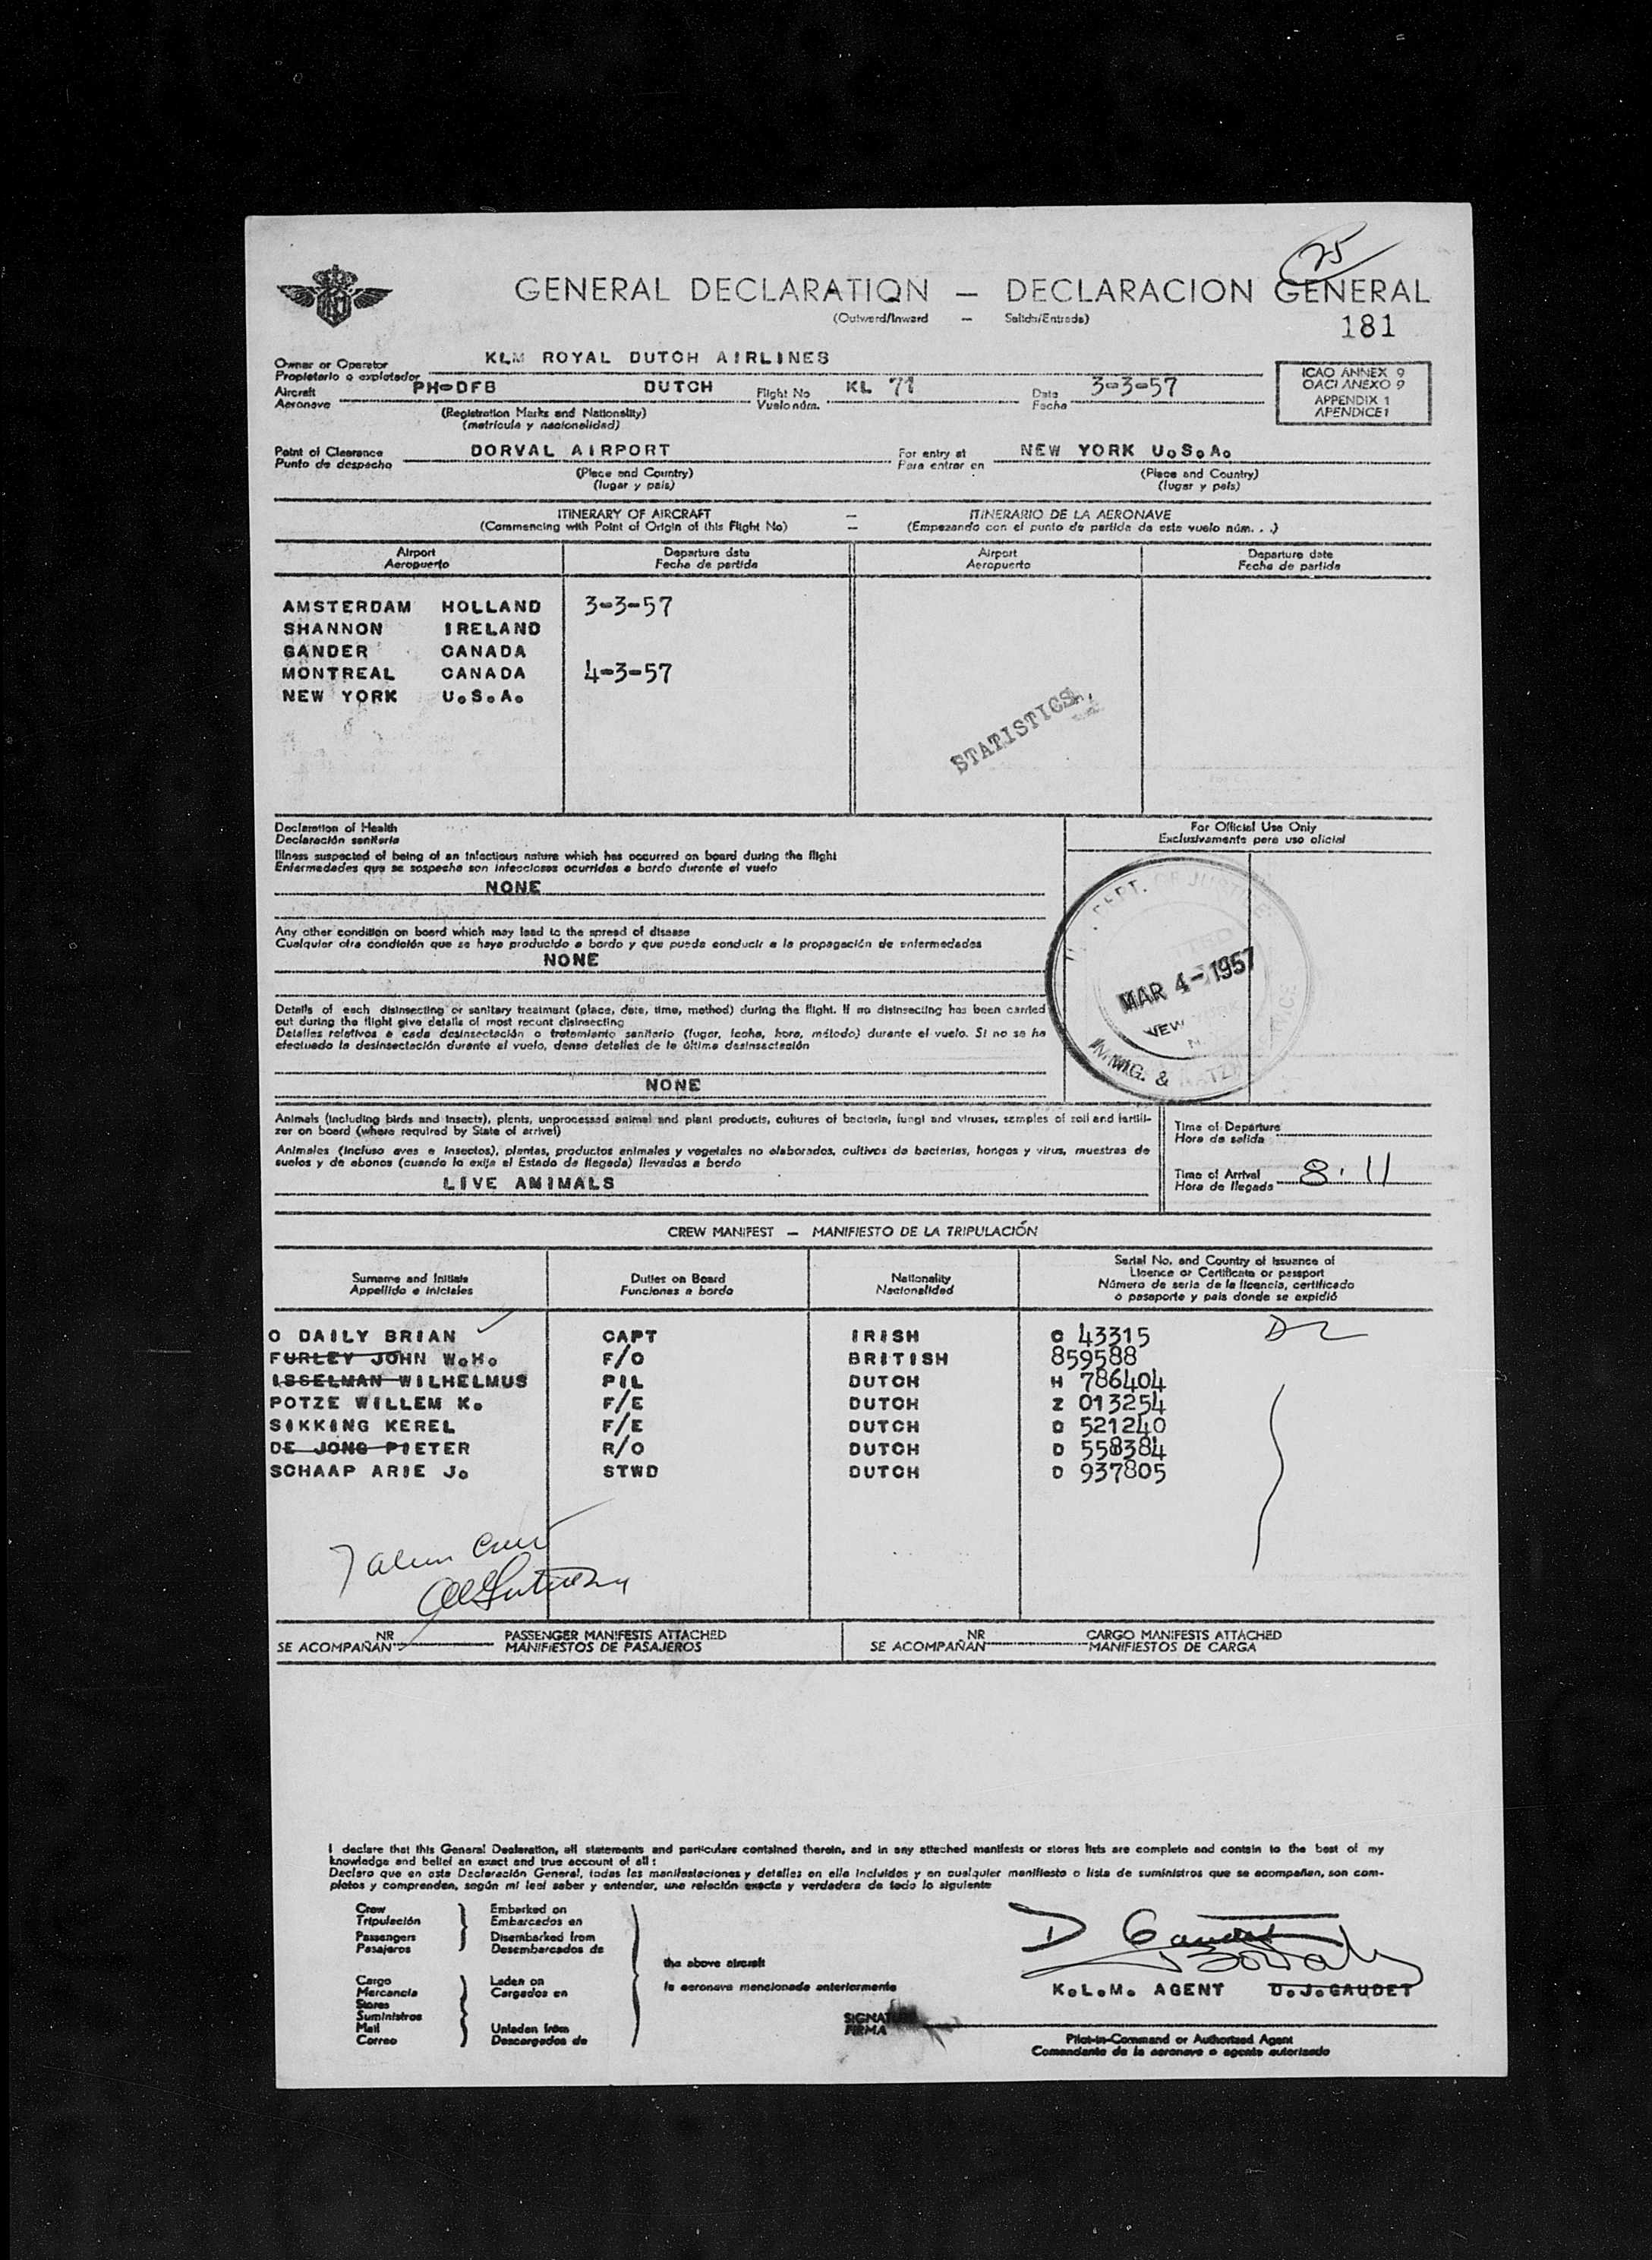 25
GENERAL DECLARATION — DECLARACION GENERAL
(Outward/Inward — Salida/Entrada)
181
Owner or Operator
Propietario o explotador
KLM ROYAL DUTCH AIRLINES
Aircraft
Aeronave
PH-DFB DUTCH
(Registration Marks and Nationality)
(matrícula y nacionalidad)
Flight No
Vuelo núm.
KL 71
Date
Fecha
3-3-57
ICAO ANNEX 9
OACI ANEXO 9
APPENDIX 1
APENDICE 1
Point of Clearance
Punto de despacho
DORVAL AIRPORT
(Place and Country)
(lugar y país)
For entry at
Para entrar en
NEW YORK U.S.A.
(Place and Country)
(lugar y país)
ITINERARY OF AIRCRAFT — ITINERARIO DE LA AERONAVE
(Commencing with Point of Origin of this Flight No) — (Empezando con el punto de partida de este vuelo núm. . .)
Airport Departure date Airport Departure date
Aeropuerto Fecha de partida Aeropuerto Fecha de partida
AMSTERDAM HOLLAND 3-3-57
SHANNON IRELAND
GANDER CANADA
MONTREAL CANADA 4-3-57
NEW YORK U.S.A.
STATISTICS
Declaration of Health
Declaración sanitaria
Illness suspected of being of an infectious nature which has occurred on board during the flight
Enfermedades que se sospecha son infecciosas ocurridas a bordo durante el vuelo
NONE
Any other condition on board which may lead to the spread of disease
Cualquier otra condición que se haya producido a bordo y que pueda conducir a la propagación de enfermedades
NONE
Details of each disinsecting or sanitary treatment (place, date, time, method) during the flight. If no disinsecting has been carried
out during the flight give details of most recent disinsecting
Detalles relativos a cada desinsectación o tratamiento sanitario (lugar, fecha, hora, método) durante el vuelo. Si no se ha
efectuado la desinsectación durante el vuelo, dense detalles de la última desinsectación
NONE
For Official Use Only
Exclusivamente para uso oficial
DEPT. OF JUSTICE
MAR 4-1957
NEW
IMMIG. &
Animals (including birds and insects), plants, unprocessed animal and plant products, cultures of bacteria, fungi and viruses, samples of soil and fertili-
zer on board (where required by State of arrival)
Animales (incluso aves e insectos), plantas, productos animales y vegetales no elaborados, cultivos de bacterias, hongos y virus, muestras de
suelos y de abonos (cuando lo exija el Estado de llegada) llevados a bordo
LIVE AMIMALS
Time of Departure
Hora de salida
Time of Arrival
Hora de llegada
8.11
CREW MANIFEST — MANIFIESTO DE LA TRIPULACIÓN
Surname and Initials
Appellido e iniciales
Duties on Board
Funciones a bordo
Nationality
Nacionalidad
Serial No. and Country of Issuance of
Licence or Certificate or passport
Número de serie de la licencia, certificado
o pasaporte y pais donde se expidió
O DAILY BRIAN CAPT IRISH C 43315 D2
FURLEY JOHN W.H. F/O BRITISH 859588
ISSELMAN WILHELMUS PIL DUTCH H 786404
POTZE WILLEM K. F/E DUTCH Z 013254
SIKKING KEREL F/E DUTCH D 521240
DE JONG PIETER R/O DUTCH D 558384
SCHAAP ARIE J. STWD DUTCH D 937805
7 alien crew
NR
SE ACOMPAÑAN
PASSENGER MANIFESTS ATTACHED
MANIFIESTOS DE PASAJEROS
NR
SE ACOMPAÑAN
CARGO MANIFESTS ATTACHED
MANIFIESTOS DE CARGA
I declare that this General Declaration, all statements and particulars contained therein, and in any attached manifests or stores lists are complete and contain to the best of my
knowledge and belief an exact and true account of all :
Declaro que en esta Declaración General, todas las manifestaciones y detalles en ella incluidos y en cualquier manifiesto o lista de suministros que se acompañan, son com-
pletos y comprenden, según mi leal saber y entender, una relación exacta y verdadera de todo lo siguiente
Crew
Tripulación
Passengers
Pasajeros
Embarked on
Embarcados en
Disembarked from
Desembarcados de
Cargo
Mercancía
Stores
Suministros
Mail
Correo
Laden on
Cargados en
Unladen from
Descargados de
the above aircraft
la aeronave mencionada anteriormente
D Gaudet
K.L.M. AGENT D.J.GAUDET
SIGNATURE
FIRMA
Pilot-in-Command or Authorized Agent
Comandante de la aeronave o agente autorizado